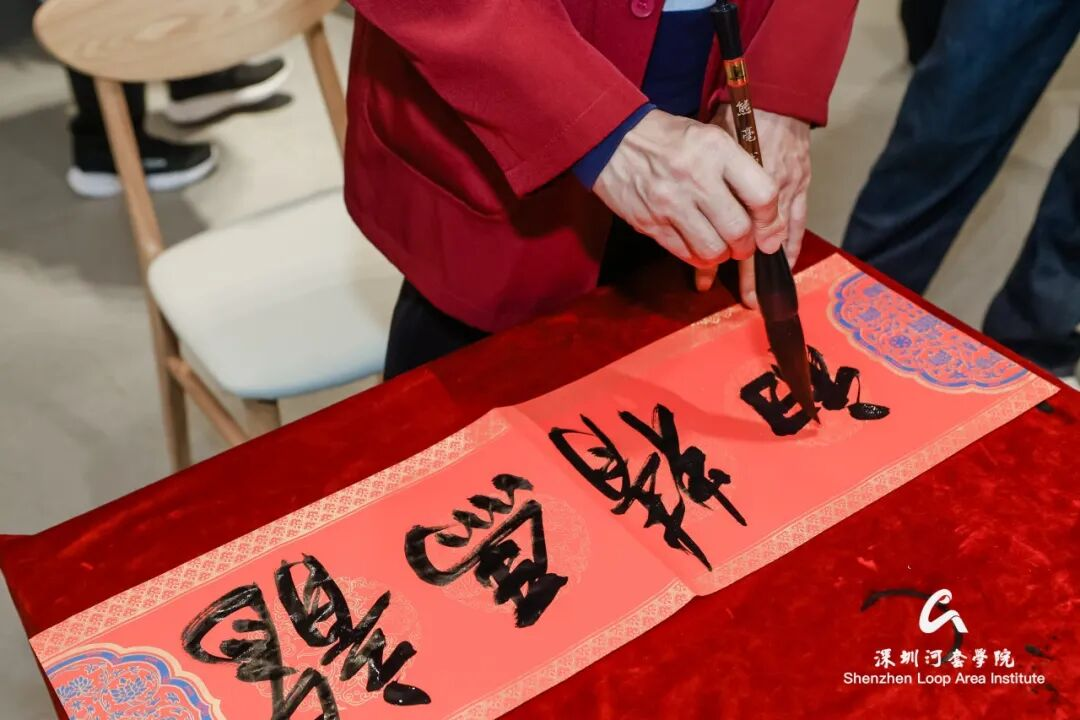 龍馬精神
熊毫
深圳河套學院
Shenzhen Loop Area Institute